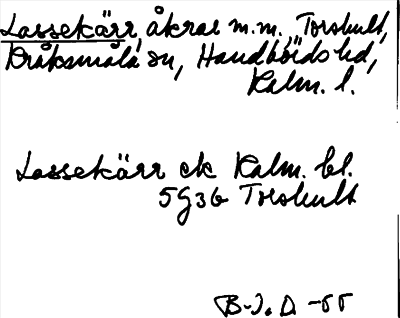 Lassekärr, åkrar m.m., Torshult,
Kråksmåla sn, Handbörds hd,
Kalm. l.
Lassekärr ek Kalm. bl.
5G3b Torshult
B-J. D. -55